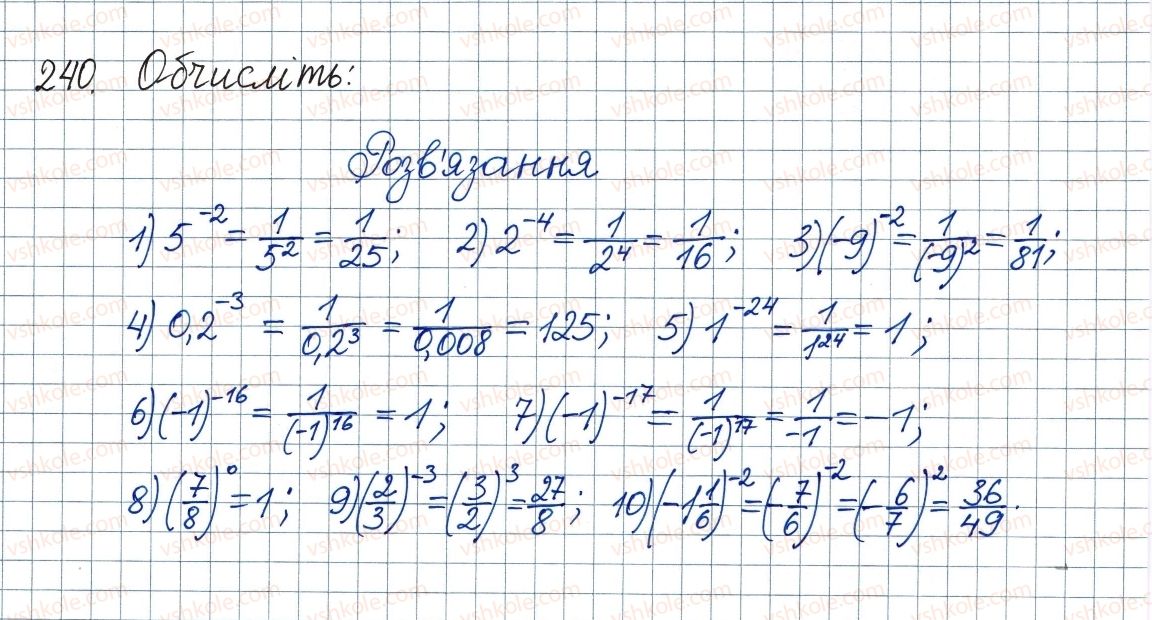 240. Обчисліть:
Розв'язання
1) 5^{-2} = \frac{1}{5^2} = \frac{1}{25}; 2) 2^{-4} = \frac{1}{2^4} = \frac{1}{16}; 3) (-9)^{-2} = \frac{1}{(-9)^2} = \frac{1}{81};
4) 0,2^{-3} = \frac{1}{0,2^3} = \frac{1}{0,008} = 125; 5) 1^{-24} = \frac{1}{1^{24}} = 1;
6) (-1)^{-16} = \frac{1}{(-1)^{16}} = 1; 7) (-1)^{-17} = \frac{1}{(-1)^{17}} = \frac{1}{-1} = -1;
8) (\frac{7}{8})^0 = 1; 9) (\frac{2}{3})^{-3} = (\frac{3}{2})^3 = \frac{27}{8}; 10) (-1\frac{1}{6})^{-2} = (-\frac{7}{6})^{-2} = (-\frac{6}{7})^2 = \frac{36}{49}.